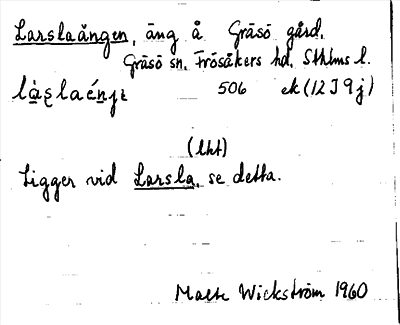 Larslaängen, äng å Gräsö gård,
Gräsö sn, Frösåkers hd, Sthlms l.
506 ek (12 I 9 j)
(lht)
Ligger vid Larsla, se detta.
Malte Wickström 1960